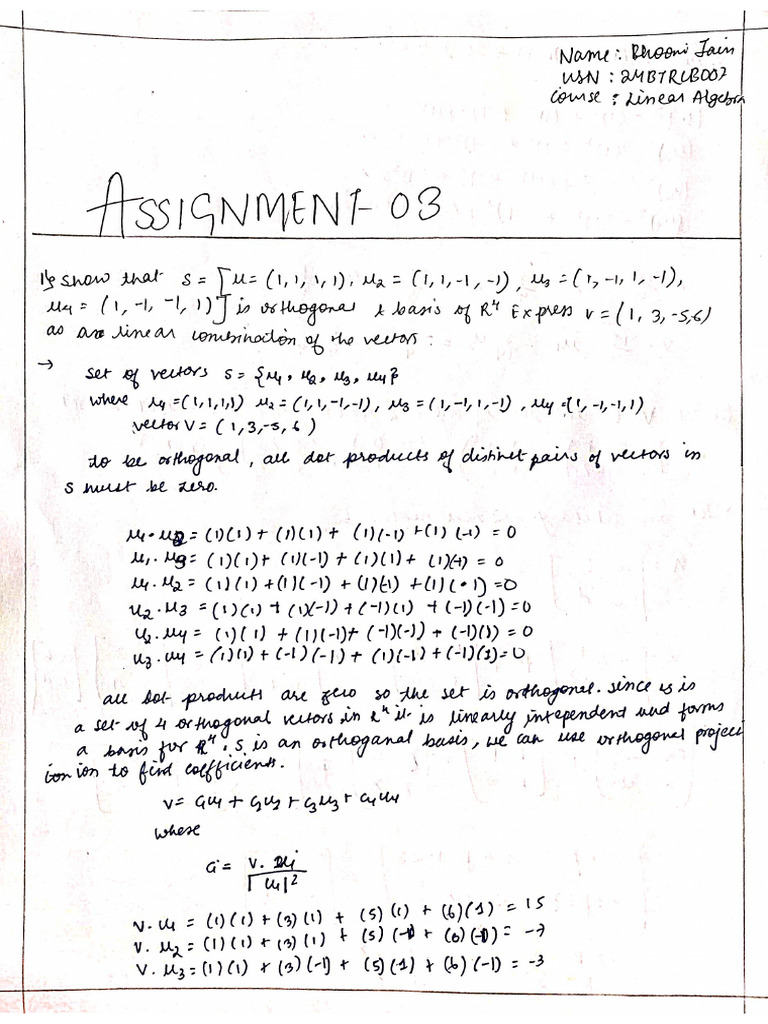 Name: Bhoomi Jain
USN : 24BTRCB007
Course : Linear Algebra
ASSIGNMENT-03
1) Show that S = [u = (1,1,1,1), u2 = (1,1,-1,-1), u3 = (1,-1,1,-1),
u4 = (1,-1,-1,1)] is orthogonal & basis of R^4 Express v = (1, 3, -5,6)
as a linear combination of the vectors :
→ set of vectors S = {u1, u2, u3, u4}
where u1 = (1,1,1,1) u2 = (1,1,-1,-1), u3 = (1,-1,1,-1), u4 = (1,-1,-1,1)
vector V = (1,3,-5,6)
To be orthogonal, all dot products of distinct pairs of vectors in
S must be zero.
u1.u2 = (1)(1) + (1)(1) + (1)(-1) + (1)(-1) = 0
u1.u3 = (1)(1) + (1)(-1) + (1)(1) + (1)(-1) = 0
u1.u2 = (1)(1) + (1)(-1) + (1)(-1) + (1)(1) = 0
u2.u3 = (1)(1) + (1)(-1) + (-1)(1) + (-1)(-1) = 0
u2.u4 = (1)(1) + (1)(-1) + (-1)(-1) + (-1)(1) = 0
u3.u4 = (1)(1) + (-1)(-1) + (1)(-1) + (-1)(1) = 0
all dot products are zero so the set is orthogonal. since is is
a set of 4 orthogonal vectors in R^4 it is linearly independent and forms
a basis for R^4. S is an orthoganal basis, we can use orthogonal project
ion to find coefficients.
V = C1u1 + C2u2 + C3u3 + C4u4
where
Ci = V.ui / |ui|^2
V.u1 = (1)(1) + (3)(1) + (5)(1) + (6)(1) = 15
V.u2 = (1)(1) + (3)(1) + (5)(-1) + (6)(-1) = -7
V.u3 = (1)(1) + (3)(-1) + (5)(1) + (6)(-1) = -3